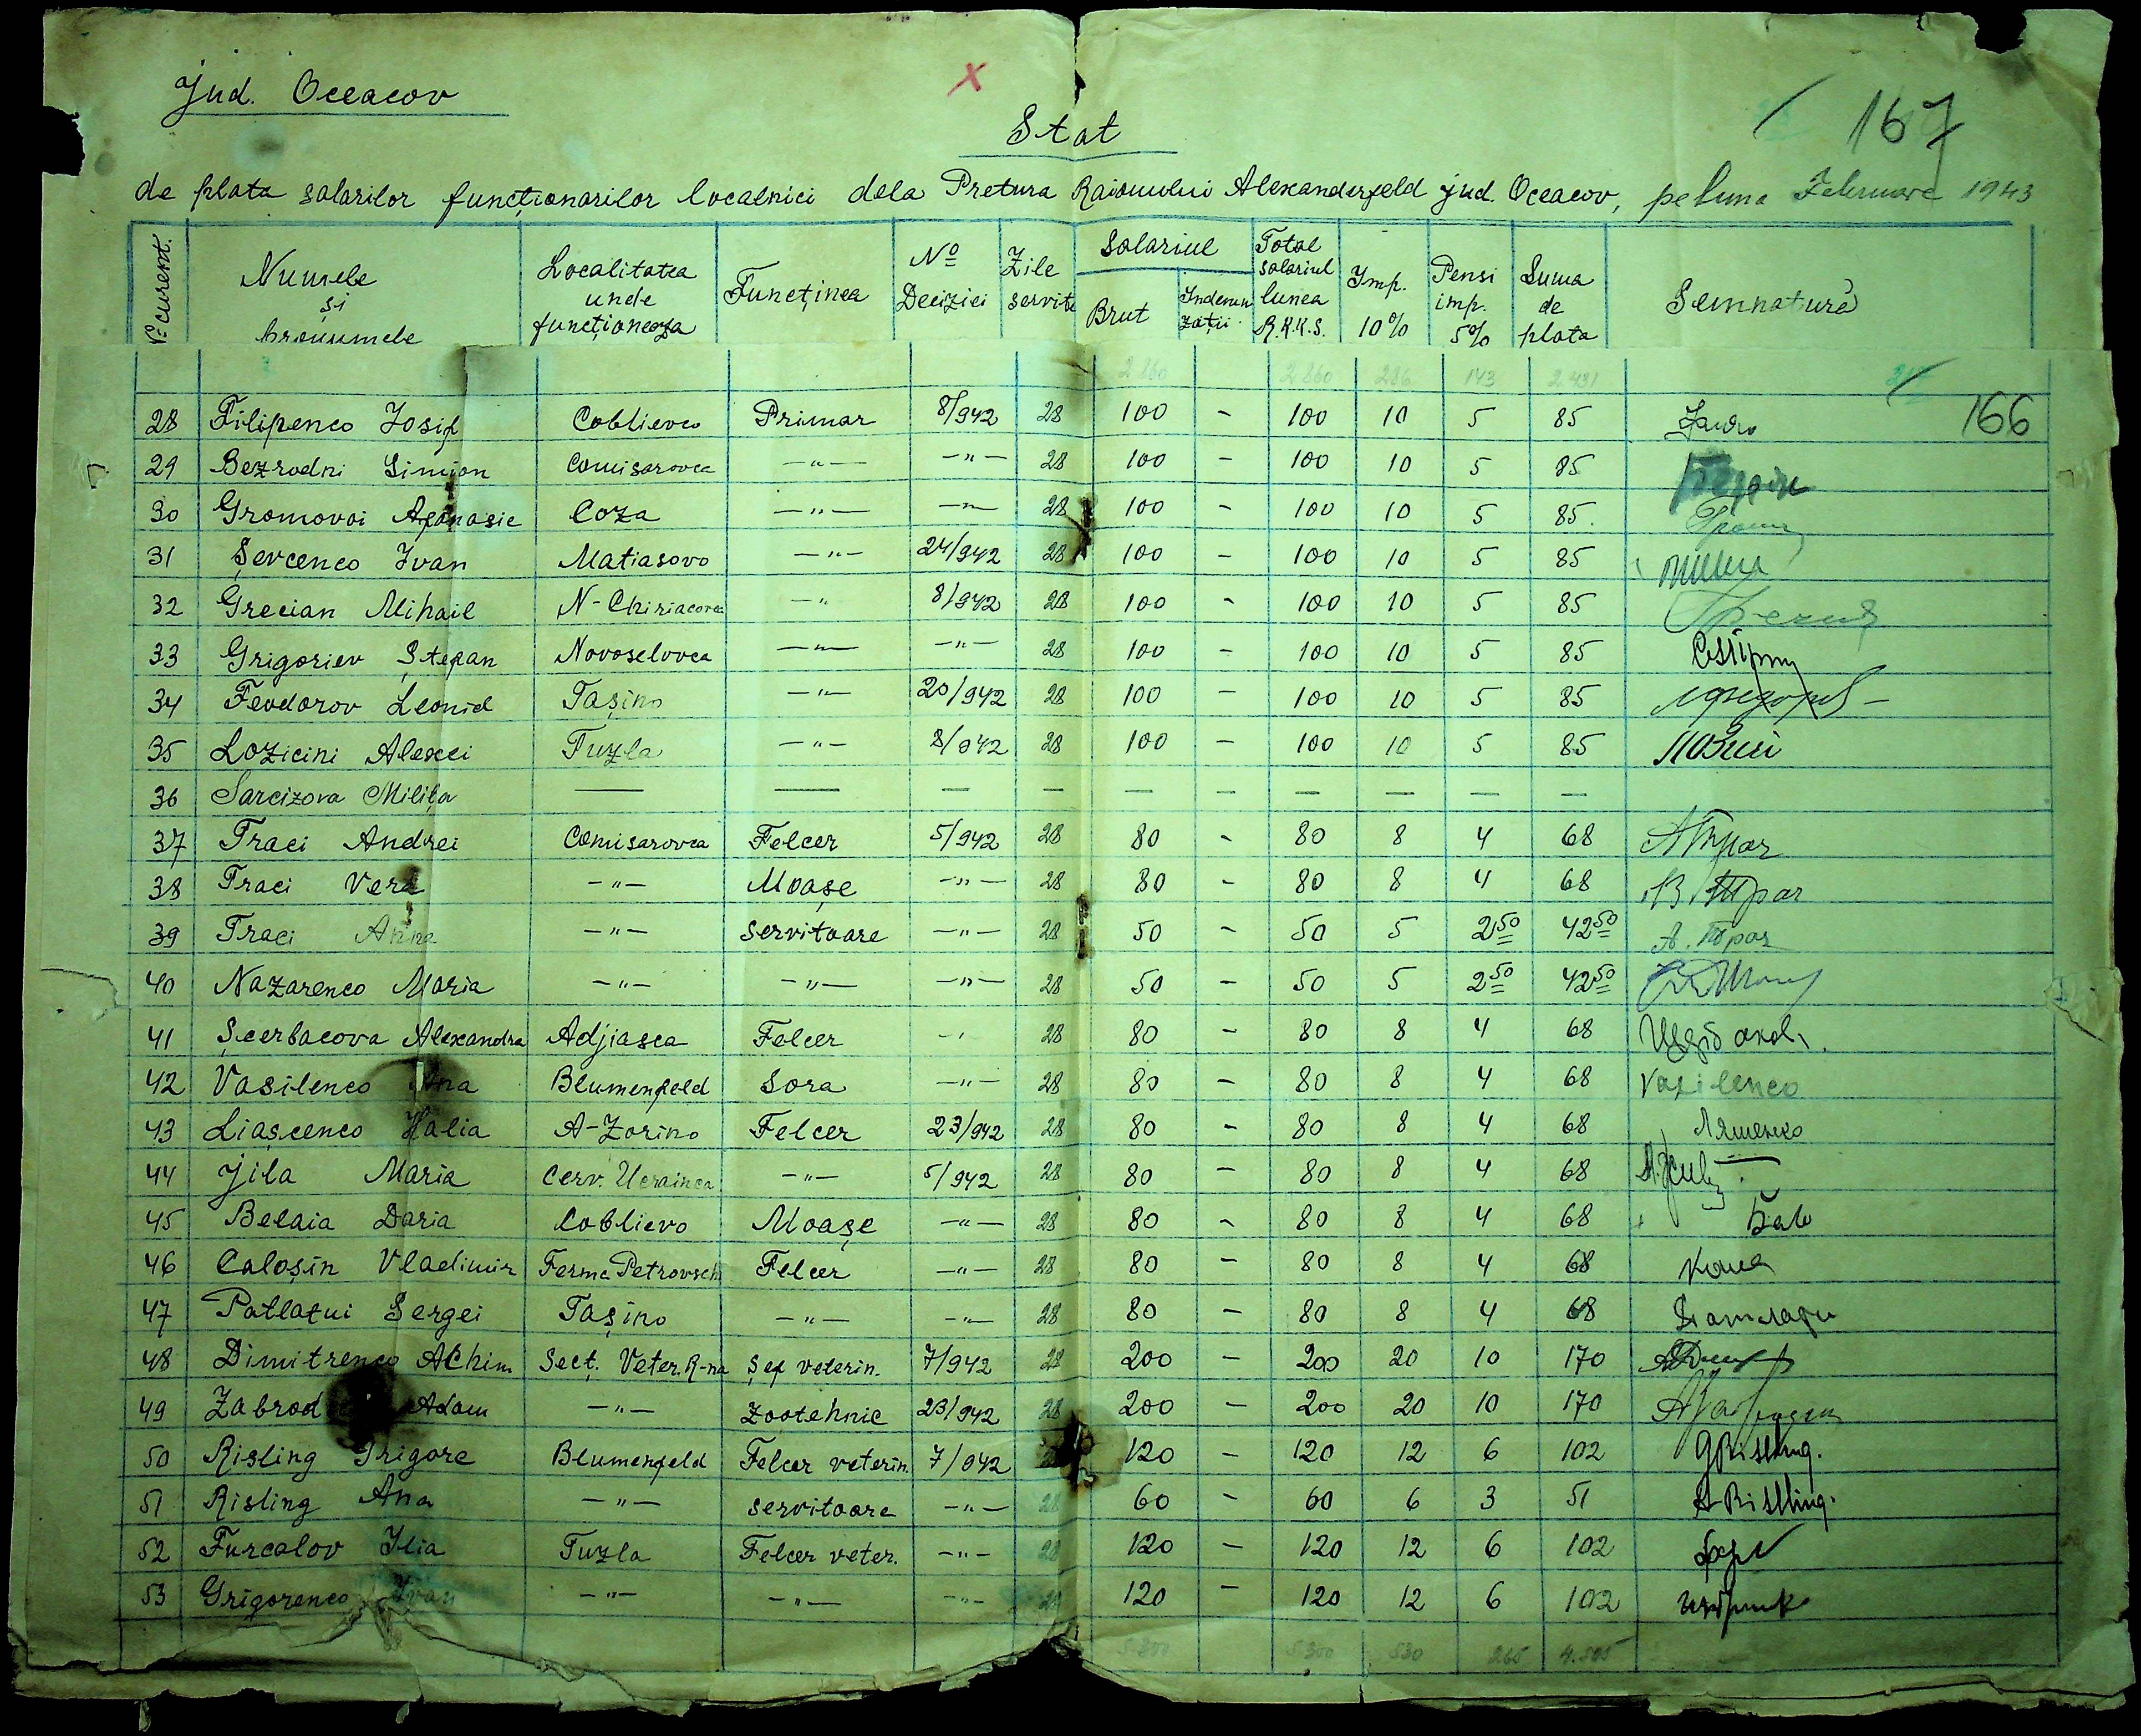 jud. Oceacov
x
167
Stat
de plata salarilor funcționarilor localnici dela Pretura Raionului Alexanderfeld jud. Oceacov, pe luna Februare 1943
No curent. Numele și pronumele Localitatea unde funcționeaza Funcținea No Deciziei Zile servite Salariul Brut Indemnizații Total salariul lunea R.K.K.S. Imp. 10% Pensi imp. 5% Suma de plata Semnatură
2.860 2.860 286 143 2.431
166
28 Filipenco Iosif Coblievo Primar 8/942 28 100 - 100 10 5 85
29 Bezrodni Simion Comisarovca -"- -"- 28 100 - 100 10 5 85
30 Gromovoi Afanasie Coza -"- -"- 28 100 - 100 10 5 85.
31 Șevcenco Ivan Matiasovo -"- 24/942 28 100 - 100 10 5 85
32 Grecian Mihail N-Chiriacova -" 8/942 28 100 - 100 10 5 85
33 Grigoriev Ștefan Novoselovca -"- -"- 28 100 - 100 10 5 85
34 Feodorov Leonid Tașino -"- 20/942 28 100 - 100 10 5 85
35 Lozicini Alexei Tuzla -"- 8/942 28 100 - 100 10 5 85
36 Sarcizova Milița — — — — — - — — — —
37 Traci Andrei Comisarovca Felcer 5/942 28 80 - 80 8 4 68 А Трач
38 Traci Vera -"- Moașe -"- 28 80 - 80 8 4 68 В. Трач
39 Traci Anna -"- servitoare -"- 28 50 - 50 5 2,50 42,50 А. Трач
40 Nazarenco Maria -"- -"- -"- 28 50 - 50 5 2,50 42,50
41 Șcerbacova Alexandra Adjiasca Felcer 28 80 - 80 8 4 68
42 Vasilenco Ana Blumenfeld Sora -"- 28 80 - 80 8 4 68 Vasilenco
43 Liașcenco Halia A-Zorino Felcer 23/942 28 80 - 80 8 4 68 Ляшенко
44 Jila Maria Cerv. Ucrainca -"- 5/942 28 80 - 80 8 4 68
45 Belaia Daria Coblievo Moașe -"- 28 80 - 80 8 4 68
46 Caloșin Vladimir Ferma Petrovsch Felcer -"- 28 80 - 80 8 4 68
47 Patlatui Sergei Tașino -"- -"- 28 80 - 80 8 4 68
48 Dimitrenco Achim Secț. Veter. R-na Șef veterin. 7/942 28 200 - 200 20 10 170
49 Zabrod Adam -"- zootehnic 23/942 28 200 - 200 20 10 170
50 Risling Grigore Blumenfeld Felcer veterin. 7/942 120 - 120 12 6 102 G Rissling.
51 Risling Ana -"- servitoare -"- 28 60 - 60 6 3 51 A-Rissling.
52 Furcalov Ilia Tuzla Felcer veter. -"- 28 120 - 120 12 6 102
53 Grigorenco Ivan -"- -"- -"- 28 120 - 120 12 6 102
5.300 5.300 530 265 4.505